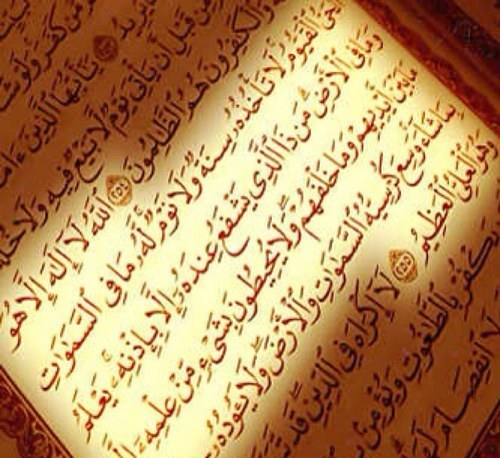 مَّن كَفَرَ وَلَوْ شَا
يُرِيدُ ۝ يَٰٓأَيُّهَا ٱلَّذِينَ ءَامَ
مِّن قَبْلِ أَن يَأْتِىَ يَوْمٌ لَّا بَيْعٌ فِيهِ وَلَا خُلَّةٌ
وَٱلْكَٰفِرُونَ هُمُ ٱلظَّٰلِمُونَ ۝٢٥٤ ٱللَّهُ لَآ إِلَٰهَ إِلَّا هُوَ
ٱلْحَىُّ ٱلْقَيُّومُ لَا تَأْخُذُهُۥ سِنَةٌ وَلَا نَوْمٌ لَّهُۥ مَا فِى ٱلسَّمَٰوَٰتِ
وَمَا فِى ٱلْأَرْضِ مَن ذَا ٱلَّذِى يَشْفَعُ عِندَهُۥٓ إِلَّا بِإِذْنِهِۦ يَعْلَمُ
مَا بَيْنَ أَيْدِيهِمْ وَمَا خَلْفَهُمْ وَلَا يُحِيطُونَ بِشَىْءٍ مِّنْ عِلْمِهِۦٓ إِلَّا
بِمَا شَآءَ وَسِعَ كُرْسِيُّهُ ٱلسَّمَٰوَٰتِ وَٱلْأَرْضَ وَلَا يَـُٔودُهُۥ
وَهُوَ ٱلْعَلِىُّ ٱلْعَظِيمُ ۝٢٥٥ لَآ إِكْرَاهَ فِى ٱلدِّينِ قَد تَّبَ
يَكْفُرْ بِٱلطَّٰغُوتِ وَيُؤْمِنۢ
لَا ٱنفِصَامَ لَ